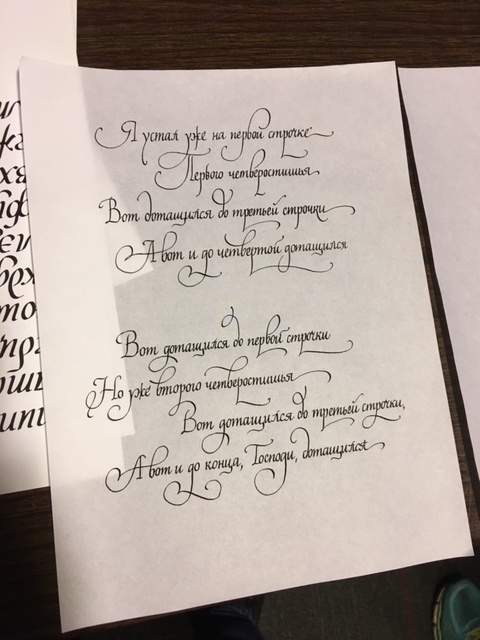 Я устал уже на первой строчке
Первого четверостишья
Вот дотащился до третьей строчки
А вот и до четвертой дотащился
Вот дотащился до первой строчки
Но уже второго четверостишья
Вот дотащился до третьей строчки,
А вот и до конца, Господи, дотащился